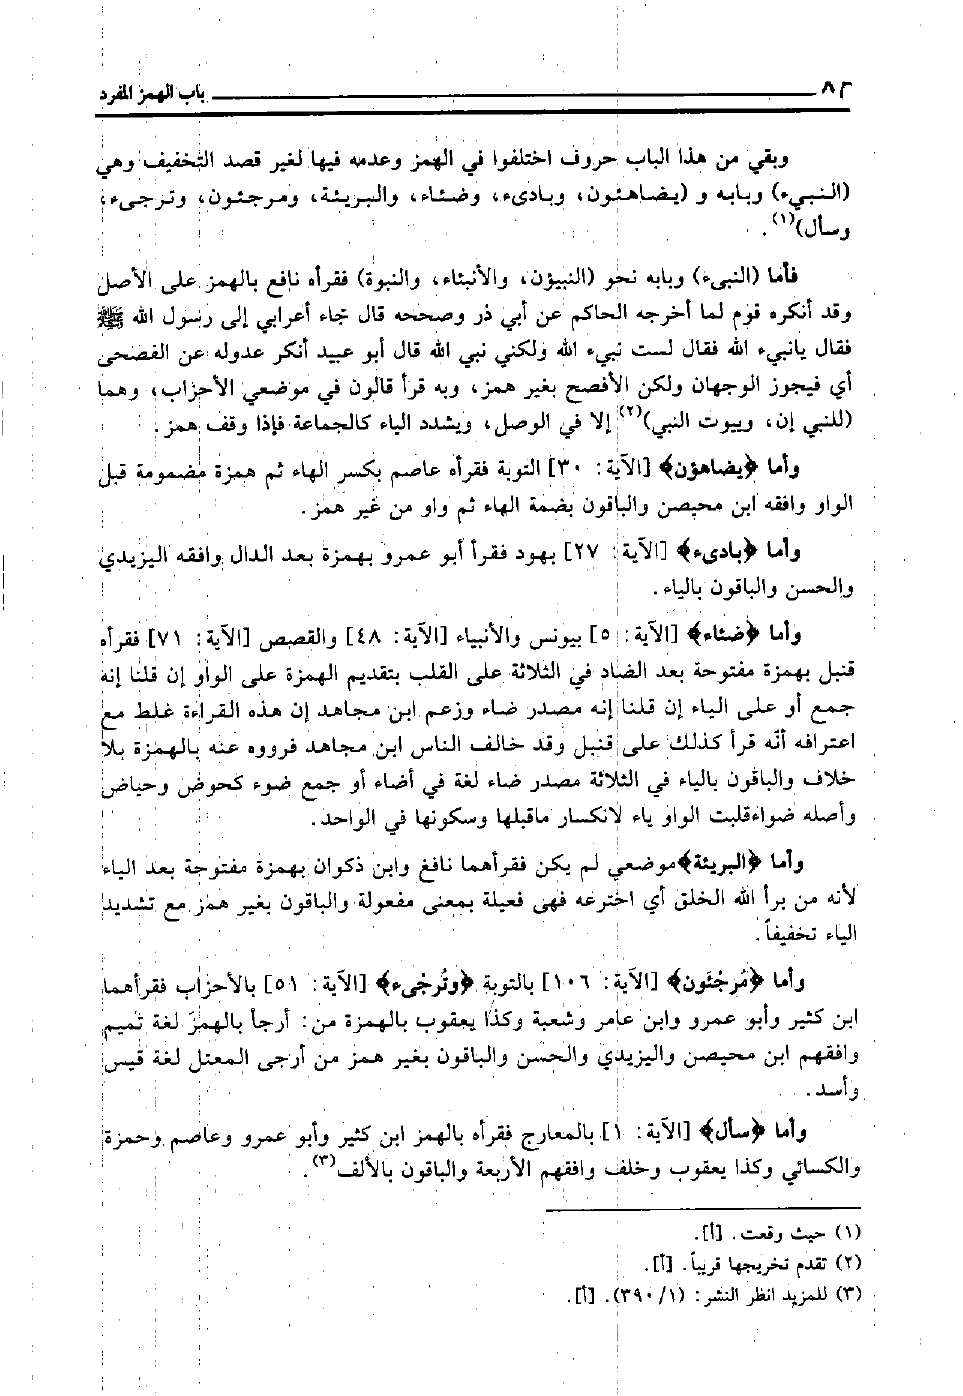 ٨٢ باب الهمز المفرد
وبقي من هذا الباب حروف اختلفوا في الهمز وعدمه فيها لغير قصد التخفيف وهي
(النبيء) وبابه و (يضاهئون، وبادىء، وضئاء، والبريئة، ومرجئون، وترجىء،
وسأل)(١).
فأما (النبىء) وبابه نحو (النبيؤن، والأنبئاء، والنبوة) فقرأه نافع بالهمز على الأصل
وقد أنكره قوم لما أخرجه الحاكم عن أبي ذر وصححه قال جاء أعرابي إلى رسول الله ﷺ
فقال يانبيء الله فقال لست نبيء الله ولكني نبي الله قال أبو عبيد أنكر عدوله عن الفصحى
أي فيجوز الوجهان ولكن الأفصح بغير همز، وبه قرأ قالون في موضعي الأحزاب، وهما
(للنبي إن، وبيوت النبي)(٢) إلا في الوصل، ويشدد الياء كالجماعة فإذا وقف همز.
وأما ﴿يضاهؤن﴾ [الآية: ٣٠] التوبة فقرأه عاصم بكسر الهاء ثم همزة مضمومة قبل
الواو وافقه ابن محيصن والباقون بضمة الهاء ثم واو من غير همز.
وأما ﴿بادىء﴾ [الآية: ٢٧] بهود فقرأ أبو عمرو بهمزة بعد الدال وافقه اليزيدي
والحسن والباقون بالياء.
وأما ﴿ضئاء﴾ [الآية: ٥] بيونس والأنبياء [الآية: ٤٨] والقصص [الآية: ٧١] فقرأه
قنبل بهمزة مفتوحة بعد الضاد في الثلاثة على القلب بتقديم الهمزة على الواو إن قلنا إنه
جمع أو على الياء إن قلنا إنه مصدر ضاء وزعم ابن مجاهد إن هذه القراءة غلط مع
اعترافه أنّه قرأ كذلك على قنبل وقد خالف الناس ابن مجاهد فرووه عنه بالهمزة بلا
خلاف والباقون بالياء في الثلاثة مصدر ضاء لغة في أضاء أو جمع ضوء كحوض وحياض
وأصله ضواءقلبت الواو ياء لانكسار ماقبلها وسكونها في الواحد.
وأما ﴿البريئة﴾موضعي لم يكن فقرأهما نافع وابن ذكوان بهمزة مفتوحة بعد الياء
لأنه من برأ الله الخلق أي اخترعه فهي فعيلة بمعنى مفعولة والباقون بغير همز مع تشديد
الياء تخفيفاً.
وأما ﴿مُرجَئون﴾ [الآية: ١٠٦] بالتوبة ﴿وتُرجىء﴾ [الآية: ٥١] بالأحزاب فقرأهما
ابن كثير وأبو عمرو وابن عامر وشعبة وكذا يعقوب بالهمزة من: أرجأ بالهمز لغة تميم
وافقهم ابن محيصن واليزيدي والحسن والباقون بغير همز من أرجى المعتل لغة قيس
وأسد.
وأما ﴿سأل﴾ [الآية: ١] بالمعارج فقرأه بالهمز ابن كثير وأبو عمرو وعاصم وحمزة
والكسائي وكذا يعقوب وخلف وافقهم الأربعة والباقون بالألف(٣).
(١) حيث وقعت. [أ].
(٢) تقدم تخريجها قريباً. [أ].
(٣) للمزيد انظر النشر: (٣٩٠/١). [أ].